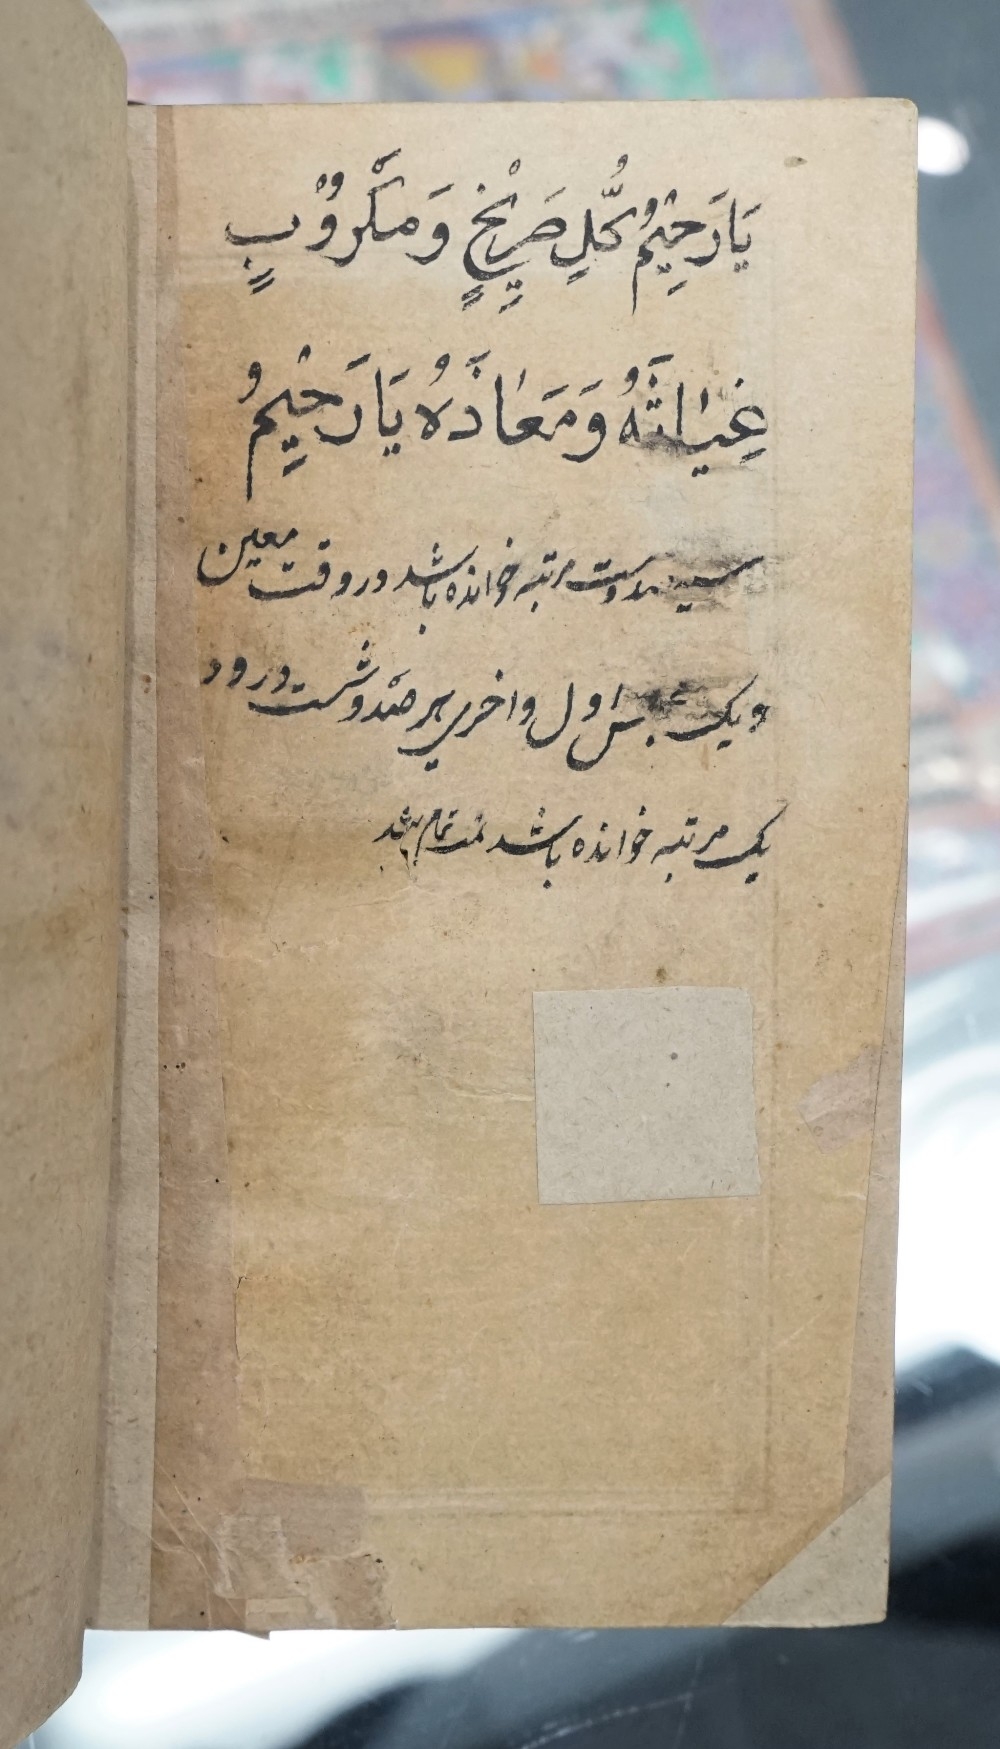 يَا رَحِيْمُ كُلِّ صَرِيْخٍ وَ مَكْرُوْبٍ
غِيَاثَهُ وَ مَعَاذَهُ يَا رَحِيْمُ
مرتبه خوانده باشد در وقت معین
و یک اول و اخر هر درود
یک مرتبه خوانده باشد تمت تمام شد